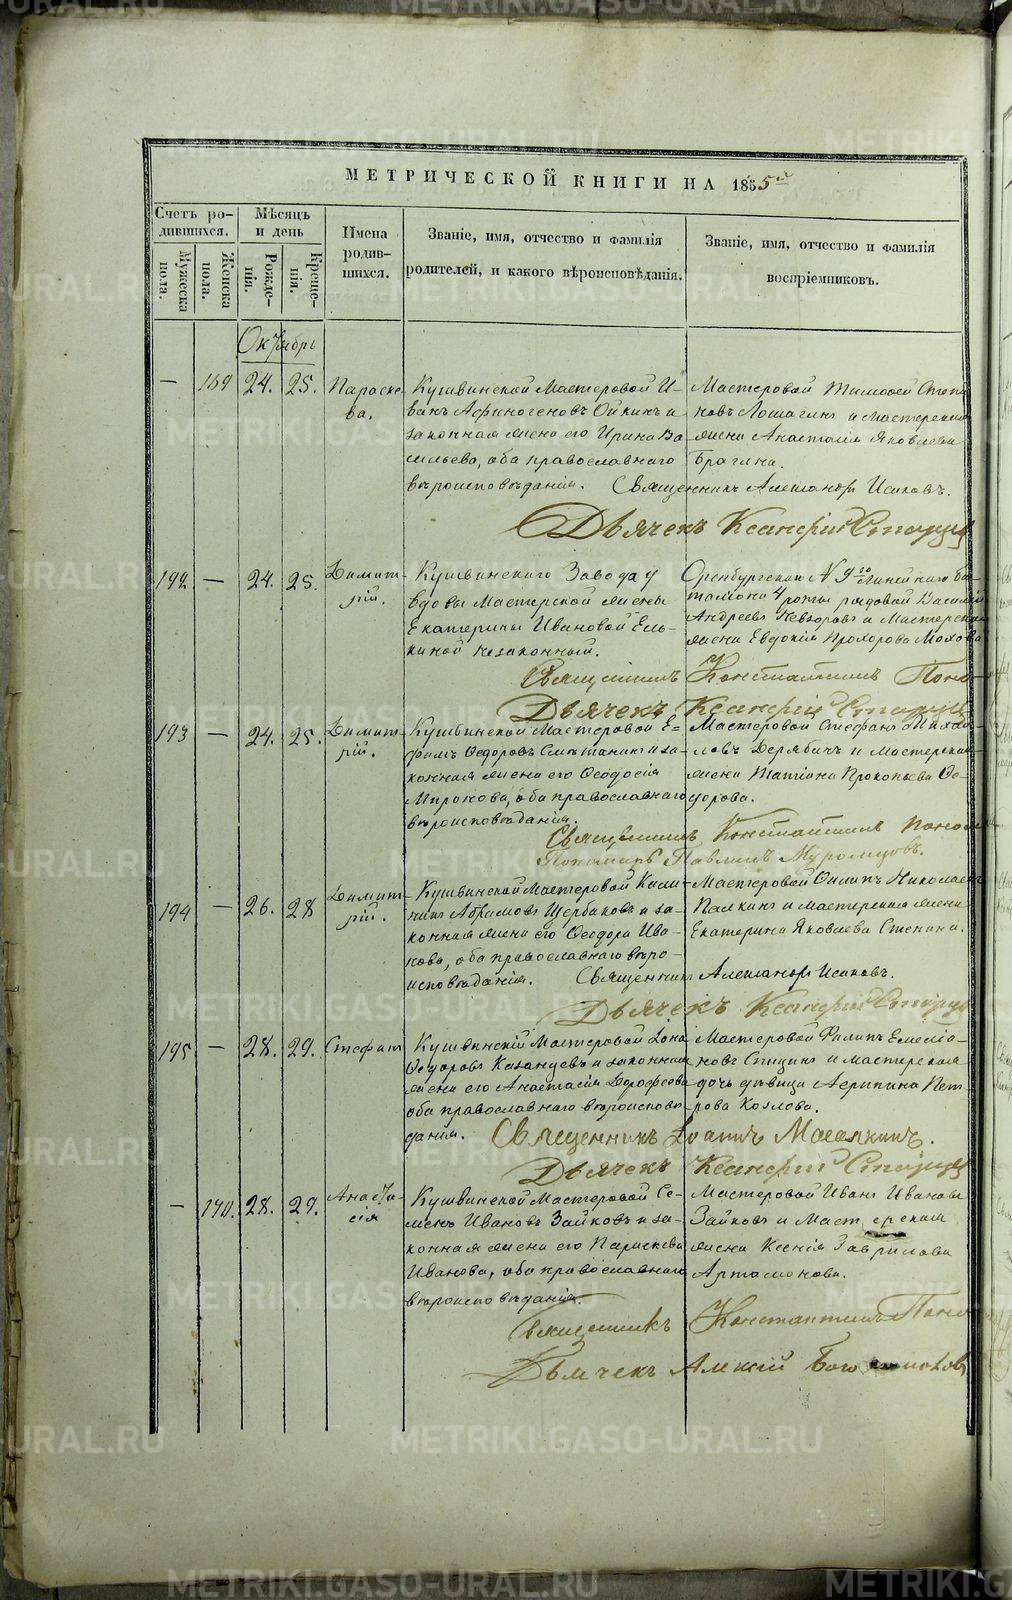 МЕТРИЧЕСКОЙ КНИГИ НА 1855й
Счетъ ро-
дившихся.
Мужеска
пола.
Женска
пола.
Мѣсяцъ
и день
Рожде-
нія.
Креще-
нія.
Имена
родив-
шихся.
Званіе, имя, отчество и фамилія
родителей, и какого вѣроисповѣданія.
Званіе, имя, отчество и фамилія
воспріемниковъ.
Октябрь
— 169 24. 25.
Параске-
ва.
Кушвинской Мастеровой И-
ванъ Афиногеновъ Ойкинъ и
законная жена его Ирина Ва
сильева, оба православнаго
вѣроисповѣданія.
Мастеровой Тимоѳей Степа
новъ Лошагинъ и Мастерская
жена Анастасія Яковлева
Брагина.
Священникъ Александръ Исаковъ.
Дьячекъ Ксанфій
192. — 24. 25.
Димит-
рій.
Кушвинскаго Завода у
вдовы Мастерской жены
Екатерины Ивановой Ель-
киной незаконный.
Оренбургскаго № 9го Линейнаго Ба
таліона 4 роты рядовой Василій
Андреевъ Невзоровъ и Мастерская
жена Евдокія Прохорова Мохова
Священникъ Константинъ Поно
Дьячекъ Ксанфій
193 — 24. 25.
Димит-
рій.
Кушвинской Мастеровой Е-
фимъ Ѳедоровъ Сметанинъ и за-
конная жена его Ѳеодосія
Миронова, оба православнаго
вѣроисповѣданія.
Мастеровой Стефанъ Михай
ловъ Дерябинъ и Мастерская
жена Татіана Прокопьева Ѳе-
дорова.
Священникъ Константинъ Поно
Пономарь Павлинъ Муромцовъ.
194 — 26. 28
Димит-
рій.
Кушвинской Мастеровой Кали-
никъ Абрамовъ Щербаковъ и за-
конная жена его Ѳеодора Ива
нова, оба православнаго вѣро-
исповѣданія.
Мастеровой Филипъ Николаевъ
Палкинъ и мастерская жена
Екатерина Яковлева Стенина.
Священникъ Александръ Исаковъ.
Дьячекъ Ксанфій
195 — 28. 29.
Стефанъ
Кушвинскій Мастеровой Іона
Ѳедоровъ Казанцевъ и законная
жена его Анастасія Дорофеева
оба православнаго вѣроисповѣ
данія.
Мастеровой Филипъ Емеліа-
новъ Спицинъ и мастерская
дочь дѣвица Агрипина Пет
рова Козлова.
Священникъ Іоаннъ Масалкинъ.
Дьячекъ Ксанфій
— 170. 28. 29.
Анаста-
сія
Кушвинской Мастеровой Се-
менъ Ивановъ Зайковъ и за-
конная жена его Параскева
Иванова, оба православнаго
вѣроисповѣданія.
Мастеровой Иванъ Ивановъ
Зайковъ и Мастерская
жена Ксенія Гаврилова
Артамонова.
Священникъ Константинъ Поно
Дьячекъ Алексій
METRIKI.GASO-URAL.RU